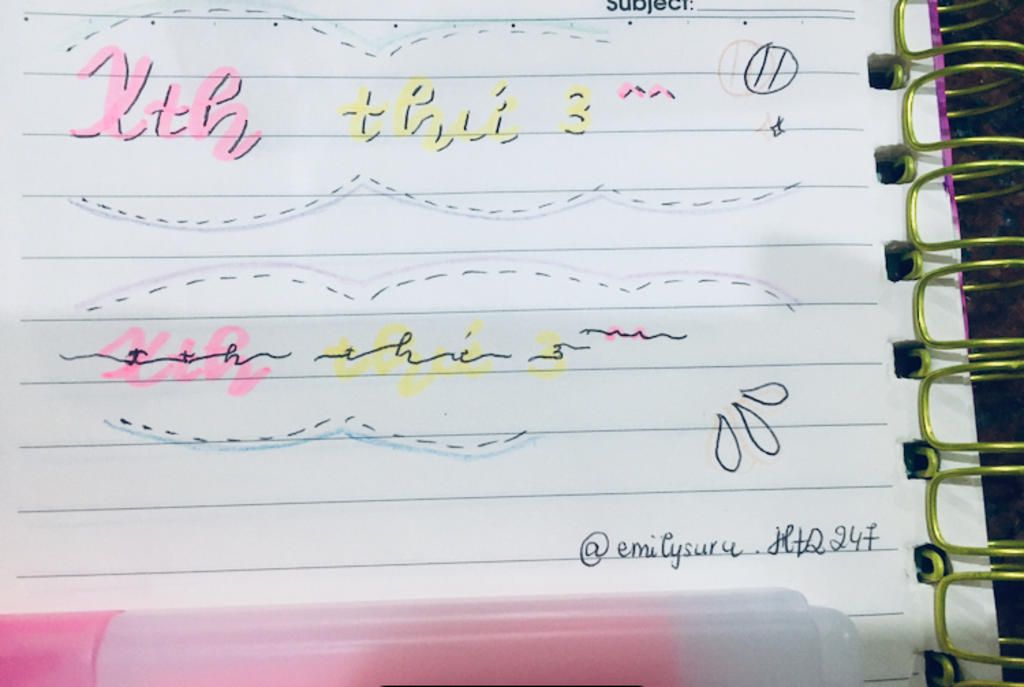 Subject:
Xth thí 3
xth thí 3
@emilysuru.HtQ247